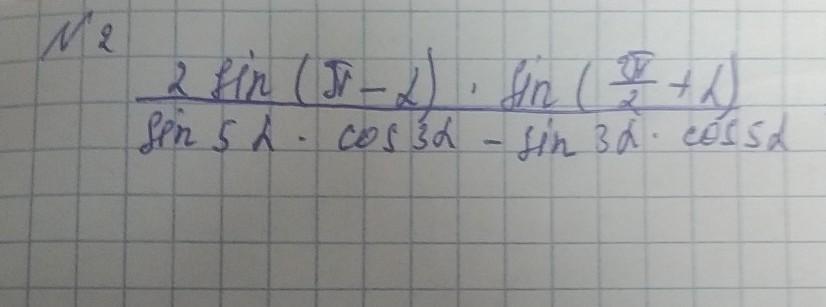 №2
2 sin (π - α) · sin (π/2 + α)
sin 5α · cos 3α - sin 3α · cos 5α